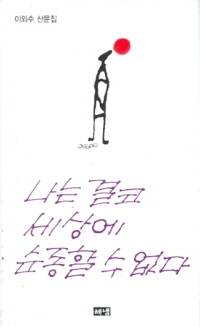 이외수 산문집
나는 결코
세상에
순종할 수 없다
해냄